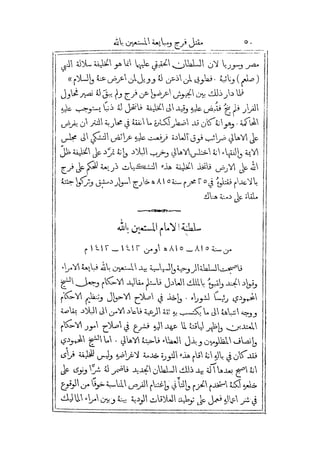 ٥٠ مقتل فرج ومبايعة المستعين بالله
مصر وسوريا لان السلطان الحقيقي عليها انما هو الخليفة سلالة النبي
(صلعم) ونائبة ٠ فطوبى لمن اذعن له وويل لمن اعرض عنه والسلام »
فلما دار ذلك بين الجيوش اعرضوا عن فرج ولم يبق له نصير فحاول
الفرار فلم ينج فقُبض عليه وقيد الى الخليفة فانتحل له ذنبًا يستوجب عليه
المحاكمة ٠ وهو انه كان قد اضطر لكثرة ما انفقه في محاربة التتر ان يفرض
على الاهالي ضرائب فوق العادة فرفعت عليه عرائض التشكي الى مجلس
الايمة والفقهاء انه اختلس الاهالي وخرب البلاد وانه تمرَّد على الخليفة ظلّ
الله على الارض فاتخذ الخليفة هذه التشكيات ذريعة للحكم على فرج
بالاعدام فقتلوه في ٢٥ محرم سنة ٨١٥ﻫ خارج اسوار دمشق وتركوا جثته
ملقاة على دمنة هناك
سلطنة الامام المستعين بالله
من سنة ٨١٥ — ٨١٥ﻫ او من ١٤١٢ — ١٤١٢ م
فاصبحت السلطة الروحية والسياسية بيد المستعين بالله فبايعه الامراء
وقواد الجند ولقبوه بالملك العادل فاستلم مقاليد الاحكام وجعل الشيخ
المحمودي رئيسًا لشوراه ٠ واخذ في اصلاح الاحوال وتنظيم الاحكام
ووجه انتباهه الى ما يكتسب به ثقة الرعية فاعاد الامن الى البلاد بقاصة
المعتدين واظهر لياقة لما عهد اليه فشرع في اصلاح امور الاحكام
وانصاف المظلومين وبذل العطاء فاحبته الاهالي ٠ اما الشيخ المحمودي
فقد كان في باله انه اقام هذه الثورة خدمة لاغراضه وليس للخليفة فرأى
انه اصبح بعدها آلة بيد ذلك السلطان الجديد فاضمر له شرًّا ونوى على
خلعه لكنه استخدم الحزم والتأني واغتنام الفرص المناسبة خوفًا من الوقوع
في شر اعماله فعمل على توطيد العلاقات الودية بينه وبين امراء المماليك